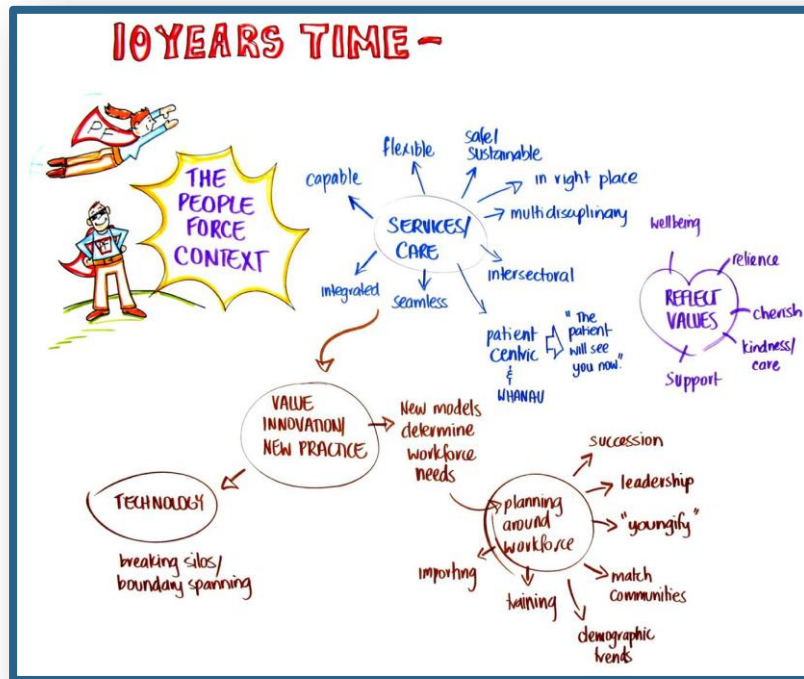 10 YEARS TIME -
PF
PF
THE
PEOPLE
FORCE
CONTEXT
SERVICES/
CARE
capable
flexible
safe/
sustainable
in right place
multidisciplinary
intersectoral
integrated
seamless
patient
centric
&
WHANAU
"The
patient
will see
you now."
REFLECT
VALUES
wellbeing
relience
cherish
kindness/
care
support
VALUE
INNOVATION/
NEW PRACTICE
TECHNOLOGY
breaking silos/
boundary spanning
New models
determine
workforce
needs
planning
around
workforce
succession
leadership
"youngify"
match
communities
demographic
trends
training
importing